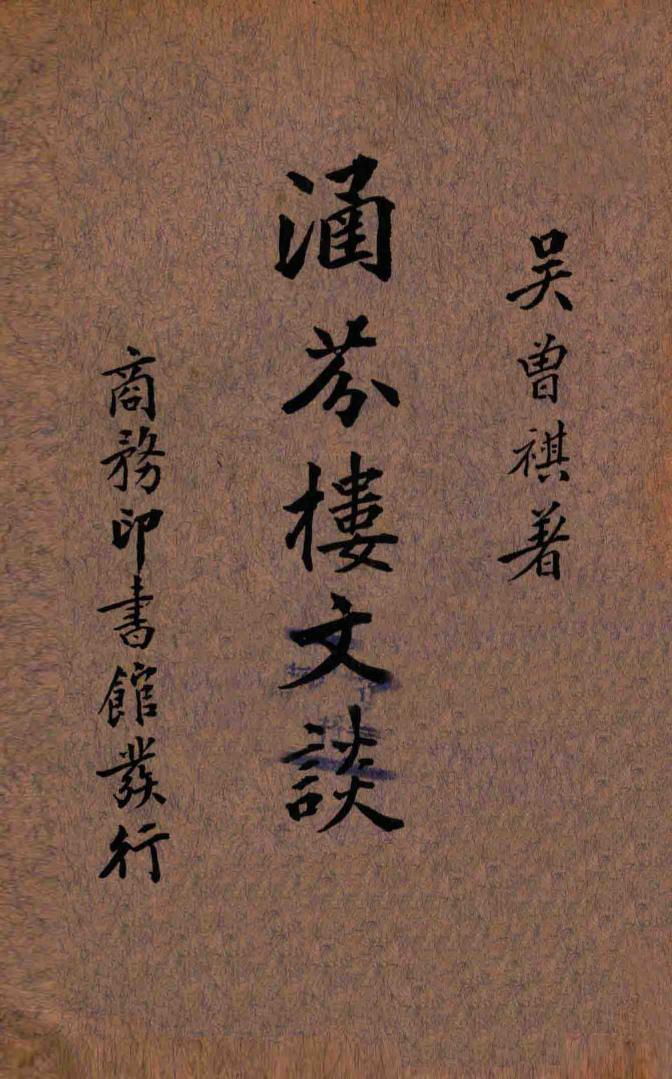 吴曾祺著
涵芬樓文談
商務印書館發行